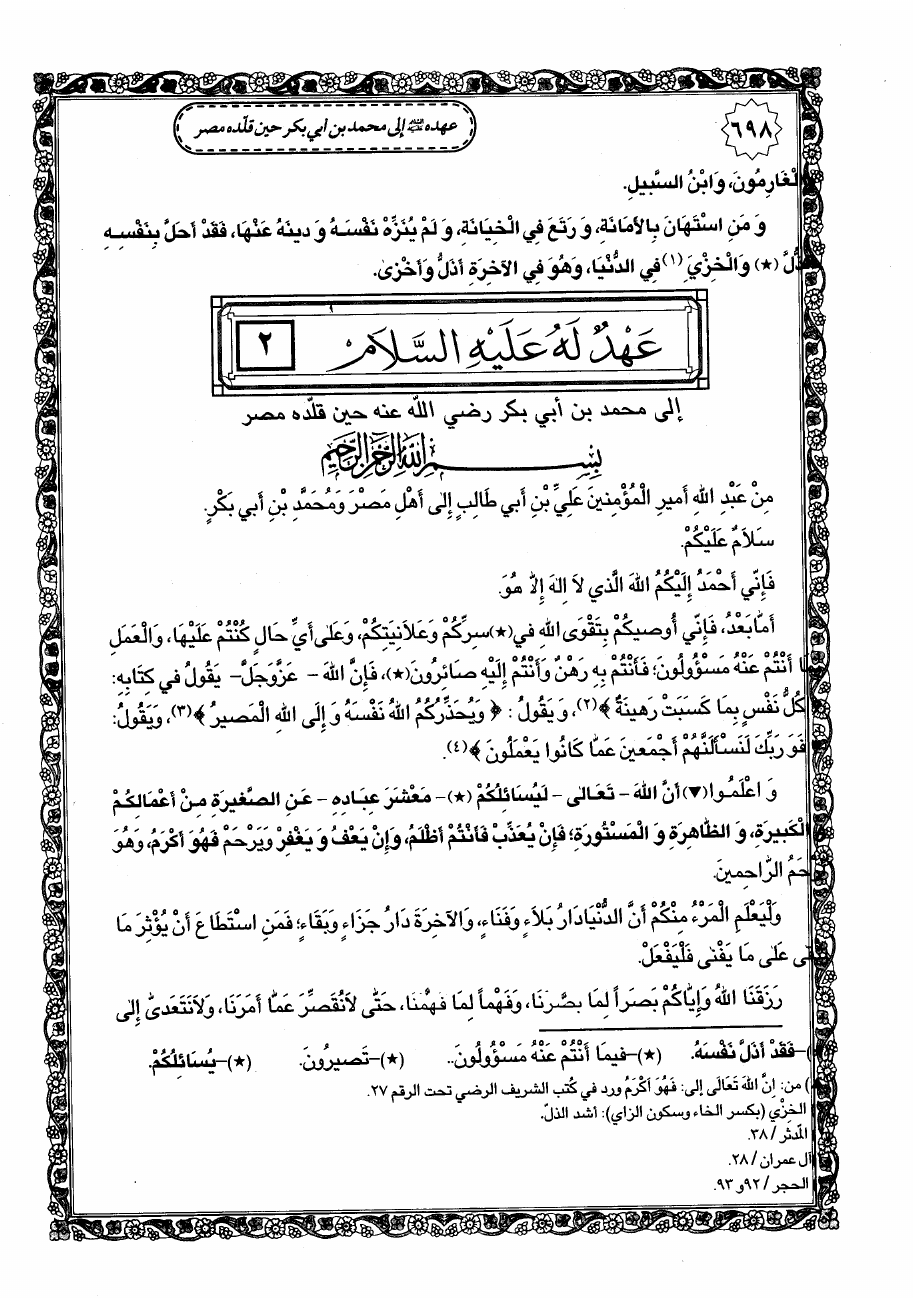 ٦٩٨
عهده عليه السلام إلى محمد بن أبي بكر حين قلّده مصر
لْغَارِمُونَ، وَابْنُ السَّبِيلِ.
وَ مَنِ اسْتَهَانَ بِالأَمَانَةِ، وَ رَتَعَ فِي الْخِيَانَةِ، وَ لَمْ يُنَزِّهْ نَفْسَهُ وَ دينَهُ عَنْهَا، فَقَدْ أَحَلَّ بِنَفْسِهِ
ذُّلَّ (★) وَالْخِزْيَ (١) فِي الدُّنْيَا، وَهُوَ فِي الآخِرَةِ أَذَلُّ وَأَخْزىٰ.
عَهْدٌ لَهُ عَلَيْهِ السَّلَامُ
٢
إلى محمد بن أبي بكر رضي اللّه عنه حين قلّده مصر
بِسْمِ اللهِ الرَّحْمٰنِ الرَّحِيمِ
مِنْ عَبْدِ اللهِ أَميرِ الْمُؤْمِنينَ عَلِيِّ بْنِ أَبي طَالِبٍ إِلىٰ أَهْلِ مَصْرَ وَمُحَمَّدِ بْنِ أَبي بَكْرٍ.
سَلَامٌ عَلَيْكُمْ.
فَإِنّي أَحْمَدُ إِلَيْكُمُ اللهَ الَّذي لاَ إِلٰهَ إِلاّٰ هُوَ.
أَمّٰا بَعْدُ، فَإِنّي أُوصيكُمْ بِتَقْوَى اللهِ في (★) سِرِّكُمْ وَعَلاَنِيَتِكُمْ، وَعَلىٰ أَيِّ حَالٍ كُنْتُمْ عَلَيْهَا، وَالْعَمَلِ
مَا أَنْتُمْ عَنْهُ مَسْؤُولُونَ؛ فَأَنْتُمْ بِهِ رَهْنٌ وَأَنْتُمْ إِلَيْهِ صَائِرُونَ (★)، فَإِنَّ اللهَ - عَزَّوَجَلَّ - يَقُولُ في كِتَابِهِ:
كُلُّ نَفْسٍ بِمَا كَسَبَتْ رَهينَةٌ ﴾(٢)، وَ يَقُولُ: ﴿ وَيُحَذِّرُكُمُ اللهُ نَفْسَهُ وَ إِلَى اللهِ الْمَصيرُ ﴾(٣)، وَيَقُولُ:
فَوَ رَبِّكَ لَنَسْأَلَنَّهُمْ أَجْمَعينَ عَمّٰا كَانُوا يَعْمَلُونَ ﴾(٤).
وَ اعْلَمُوا (▼) أَنَّ اللهَ - تَعَالىٰ - لَيُسَائِلُكُمْ (★) - مَعْشَرَ عِبَادِهِ - عَنِ الصَّغيرَةِ مِنْ أَعْمَالِكُمْ
الْكَبيرَةِ، وَ الظَّاهِرَةِ وَ الْمَسْتُورَةِ؛ فَإِنْ يُعَذِّبْ فَأَنْتُمْ أَظْلَمُ، وَإِنْ يَعْفُ وَ يَغْفِرْ وَيَرْحَمْ فَهُوَ أَكْرَمُ، وَهُوَ
حَمُ الرَّاحِمينَ.
وَلْيَعْلَمِ الْمَرْءُ مِنْكُمْ أَنَّ الدُّنْيَا دَارُ بَلاَءٍ وَفَنَاءٍ، وَالآخِرَةَ دَارُ جَزَاءٍ وَبَقَاءٍ؛ فَمَنِ اسْتَطَاعَ أَنْ يُؤْثِرَ مَا
قىٰ عَلىٰ مَا يَفْنىٰ فَلْيَفْعَلْ.
رَزَقَنَا اللهُ وَإِيّٰاكُمْ بَصَراً لِمَا بَصَّرَنَا، وَفَهْماً لِمَا فَهَّمَنَا، حَتّىٰ لاَ نُقَصِّرَ عَمّٰا أَمَرَنَا، وَلاَ نَتَعَدّىٰ إِلىٰ
)- فَقَدْ أَذَلَّ نَفْسَهُ. (★)- فيمَا أَنْتُمْ عَنْهُ مَسْؤُولُونَ.. (★)- تَصيرُونَ. (★)- يُسَائِلُكُمْ.
) من: إِنَّ اللهَ تَعَالَى إلى: فَهُوَ أَكْرَمُ ورد في كُتب الشريف الرضي تحت الرقم ٢٧.
الخِزْي (بكسر الخاء وسكون الزاي): أشد الذلّ.
المدّثر / ٣٨.
آل عمران / ٢٨.
الحجر / ٩٢ و ٩٣.